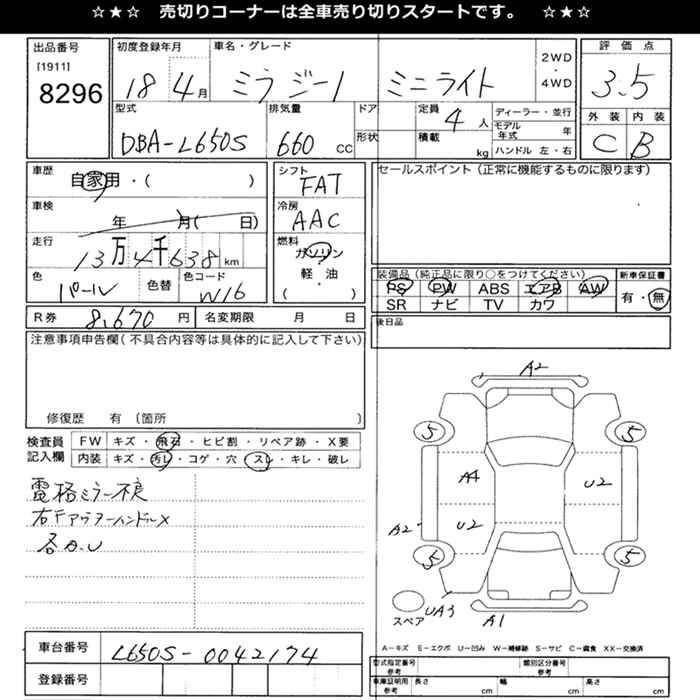 ☆★☆ 売切りコーナーは全車売り切りスタートです。 ☆★☆
出品番号 [1911] 8296
初度登録年月 18 4月
車名・グレード ミラ ジーノ ミニライト
2WD・4WD
評価点 3.5
型式 DBA-L650S
排気量 660 CC
ドア 形状
定員 4人
積載 kg
ディーラー・並行
モデル年式 年
ハンドル 左・右
外装 C
内装 B
車歴 自家用・( )
シフト FAT
セールスポイント(正常に機能するものに限ります)
車検 年 月( 日)
冷房 AAC
走行 13万4千638km
燃料 ガソリン 軽・油 ( )
色 パール
色替
色コード W16
装備品(純正品に限り○をつけてください)
PS PW ABS エアB AW
SR ナビ TV カワ
新車保証書 有・無
R券 8,670円
名変期限 月 日
後日品
注意事項申告欄(不具合内容等は具体的に記入して下さい)
修復歴 有(箇所 )
検査員記入欄
FW キズ・飛石・ヒビ割・リペア跡・X要
内装 キズ・汚レ・コゲ・穴・スレ・キレ・破レ
電格ミラー不良
右Fアウターハンドル×
各A.U
A2
5 5
A4 U2
U2
A2
5 5
スペア
UA3
A1
A−キズ E−エクボ U−凹み W−補修跡 S−サビ C−腐食 XX−交換済
車台番号 L650S-0042174
登録番号
型式指定番号 参考
類別区分番号 参考
車庫証明用 参考 長さ cm 幅 cm 高さ cm